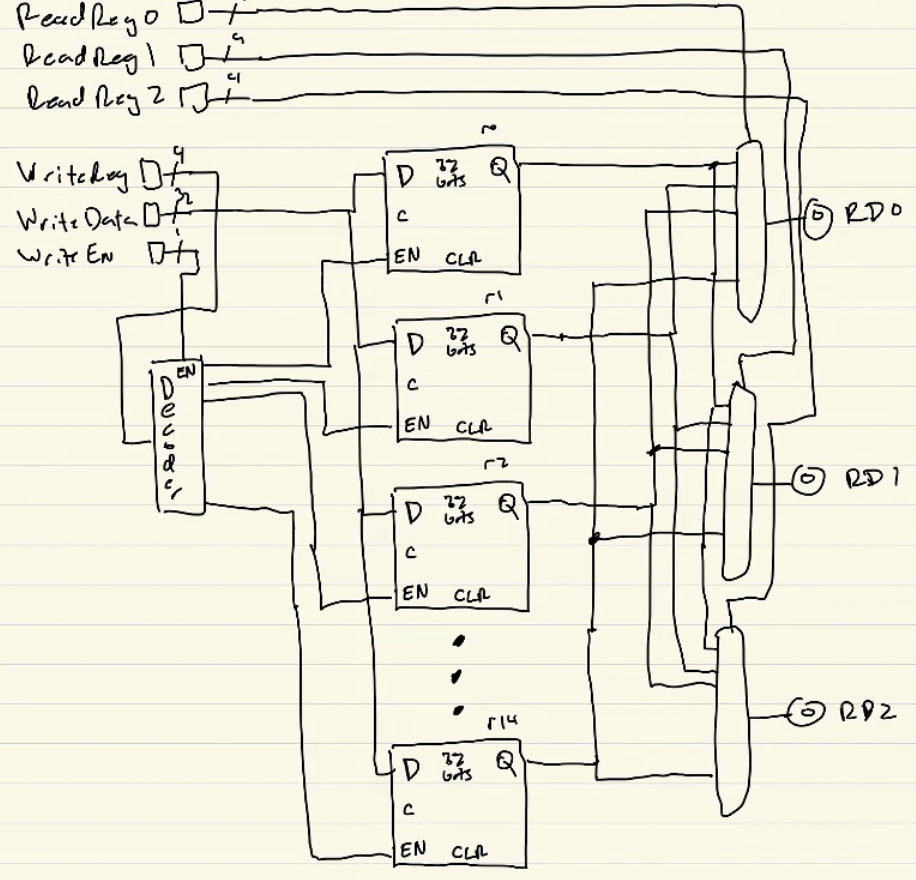 ReadReg0
ReadReg1 4
ReadReg2 4
WriteReg 4
WriteData 32
WriteEN 1
r0
D 32 bits Q
C
EN CLR
r1
D 32 bits Q
C
EN CLR
r2
D 32 bits Q
C
EN CLR
r14
D 32 bits Q
C
EN CLR
EN
Decoder
RD0
RD1
RD2